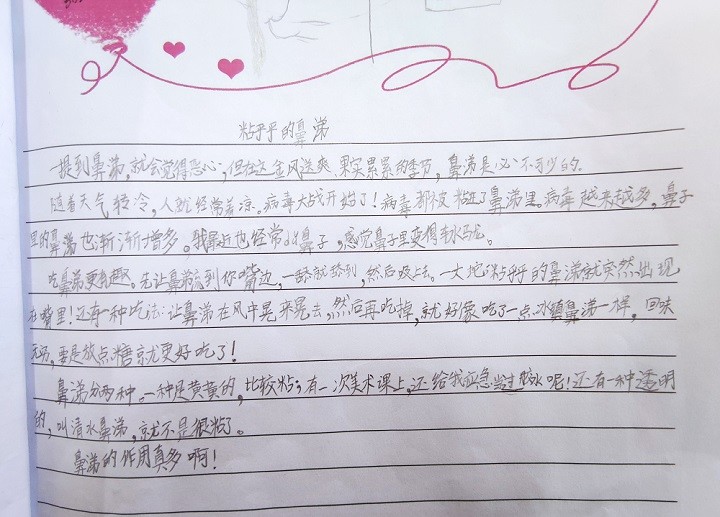 粘乎乎的鼻涕
一提到鼻涕,就会觉得恶心,但在这金风送爽、果实累累的季节,鼻涕是必不可少的。
随着天气转冷,人就经常着凉。病毒大战开始了!病毒都被粘进了鼻涕里。病毒越来越多,鼻子
里的鼻涕也渐渐增多。我最近也经常 鼻子,感觉鼻子里变得毛水马龙。
吃鼻涕更有趣。先让鼻涕流到你嘴边,一舔就舔到,然后吸上去。一大坨粘乎乎的鼻涕就突然出现
在嘴里!还有一种吃法:让鼻涕在风中晃来晃去,然后再吃掉,就好像吃了一点冰镇鼻涕一样,回味
无穷,要是放点糖京尤更好吃了!
鼻涕分两种。一种是黄黄的,比较粘;有一次美术课上,还给我应急当过胶水呢!还有一种透明
的,叫清水鼻涕,就不是很粘了。
鼻涕的作用真多啊!